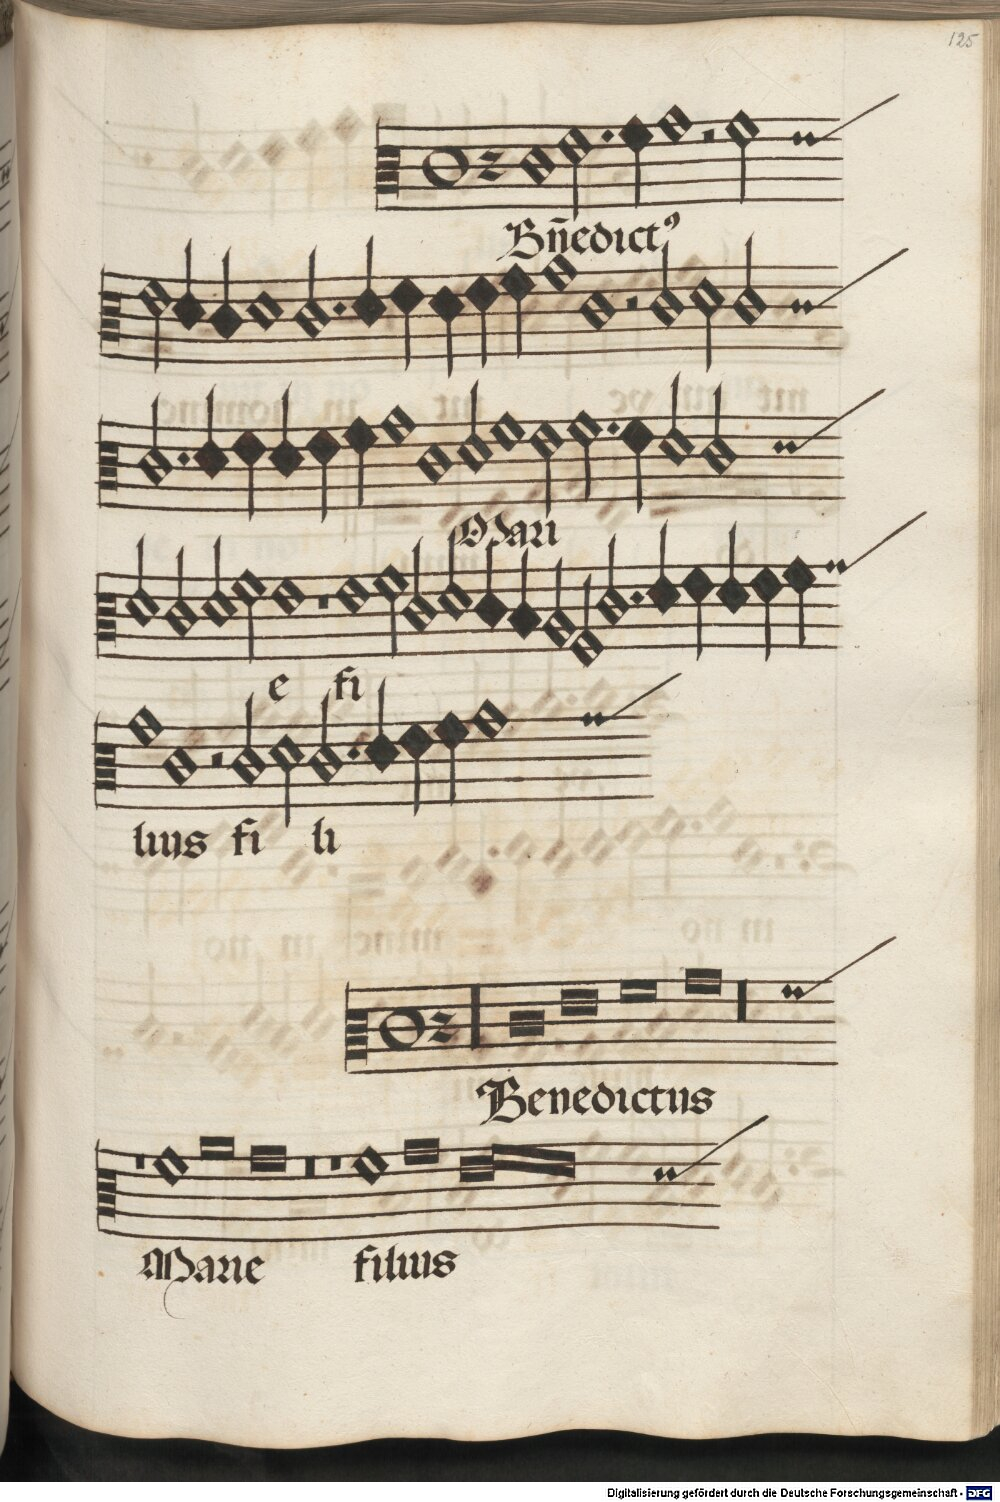 125
Bn̄edictꝰ
Mari
e fi
lius fi li
Benedictus
Marie filius
Digitalisierung gefördert durch die Deutsche Forschungsgemeinschaft - DFG